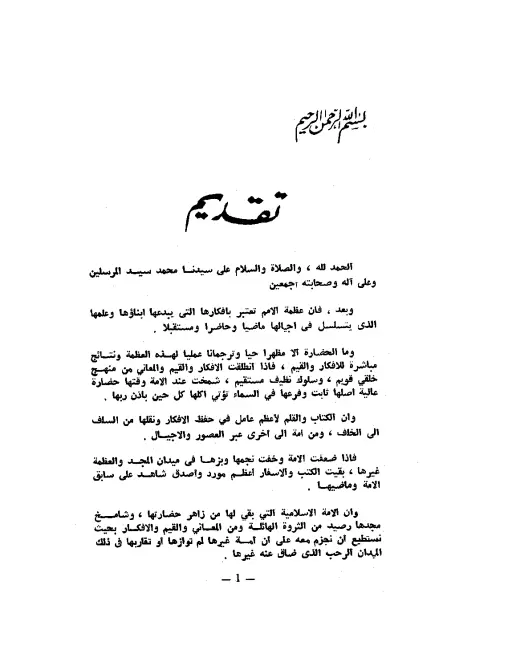 بسم الله الرحمن الرحيم
تقديم
الحمد لله ، والصلاة والسلام على سيدنـا محمد سيـد المرسلين
وعلى آله وصحابته اجمعين
وبعد ، فان عظمة الامم تعتبر بافكارها التى يبدعها ابناؤها وعلمها
الذى يتسلسل فى اجيالها ماضيا وحاضرا ومستقبلا .
وما الحضارة الا مظهرا حيا وترجمانا عمليا لهـذه العظمة ونتـائج
مباشرة للافكار والقيم ، فاذا انطلقت الافكار والقيم والمعاني من منهـج
خلقي قويم ، وسلوك نظيف مستقيم ، شمخت عند الامة وقتها حضارة
عالية اصلها ثابت وفرعها في السماء تؤتي اكلها كل حين باذن ربها .
وان الكتاب والقلم لاعظم عامل في حفظ الافكار ونقلها من السلف
الى الخلف ، ومن امة الى اخرى عبر العصور والاجيـال .
فاذا ضعفت الامة وخفت نجمها وبزهـا في ميدان المجـد والعظمة
غيرها ، بقيت الكتب والاسفار اعظـم مورد واصدق شاهـد على سابق
الامة وماضيهـا .
وان الامة الاسلامية التي بقي لها من زاهر حضارتها ، وشامـخ
مجدها رصيد من الثروة الهائلـة ومن المعـاني والقيم والافكـار بحيث
نستطيع ان نجزم معه على ان امـة غيرها لم توازها او تقاربها فى ذلك
الميدان الرحب الذى ضاق عنه غيرها .
— 1 —